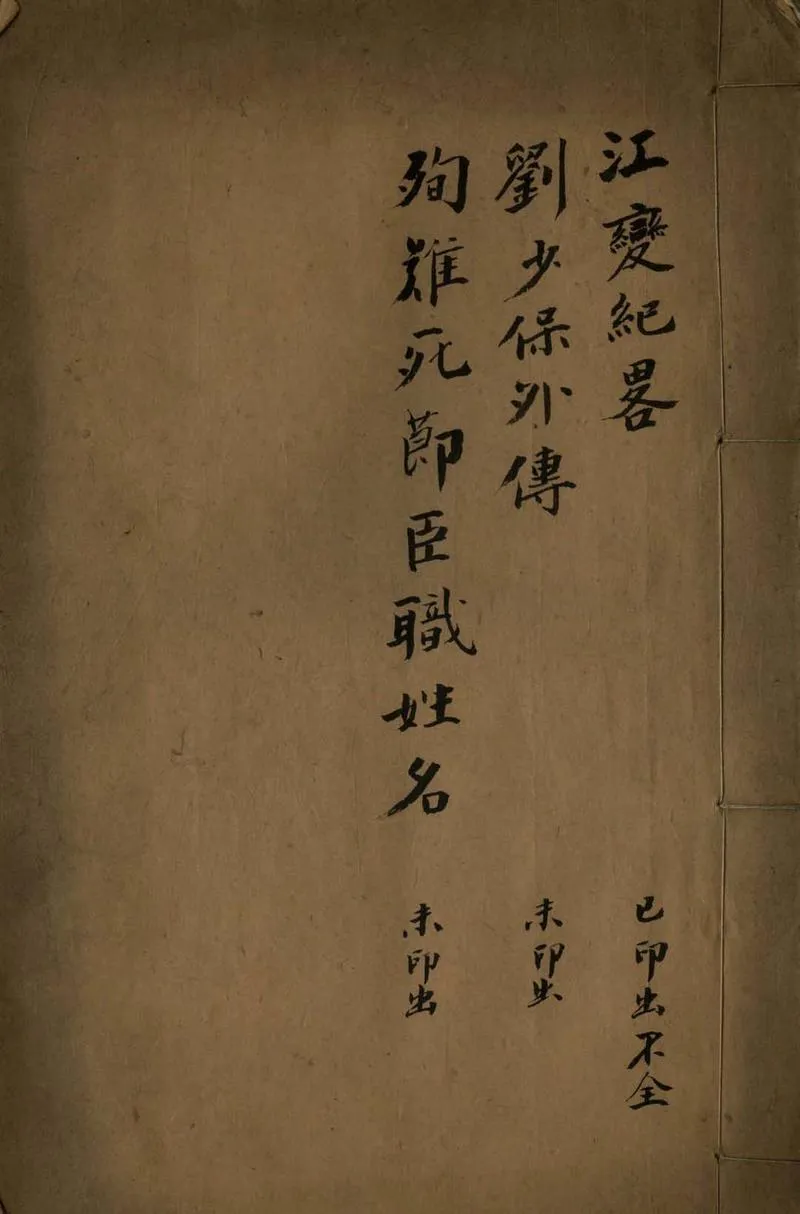 江變紀畧
已印出不全
劉少保外傳
未印出
殉難死節臣職姓名
未印出